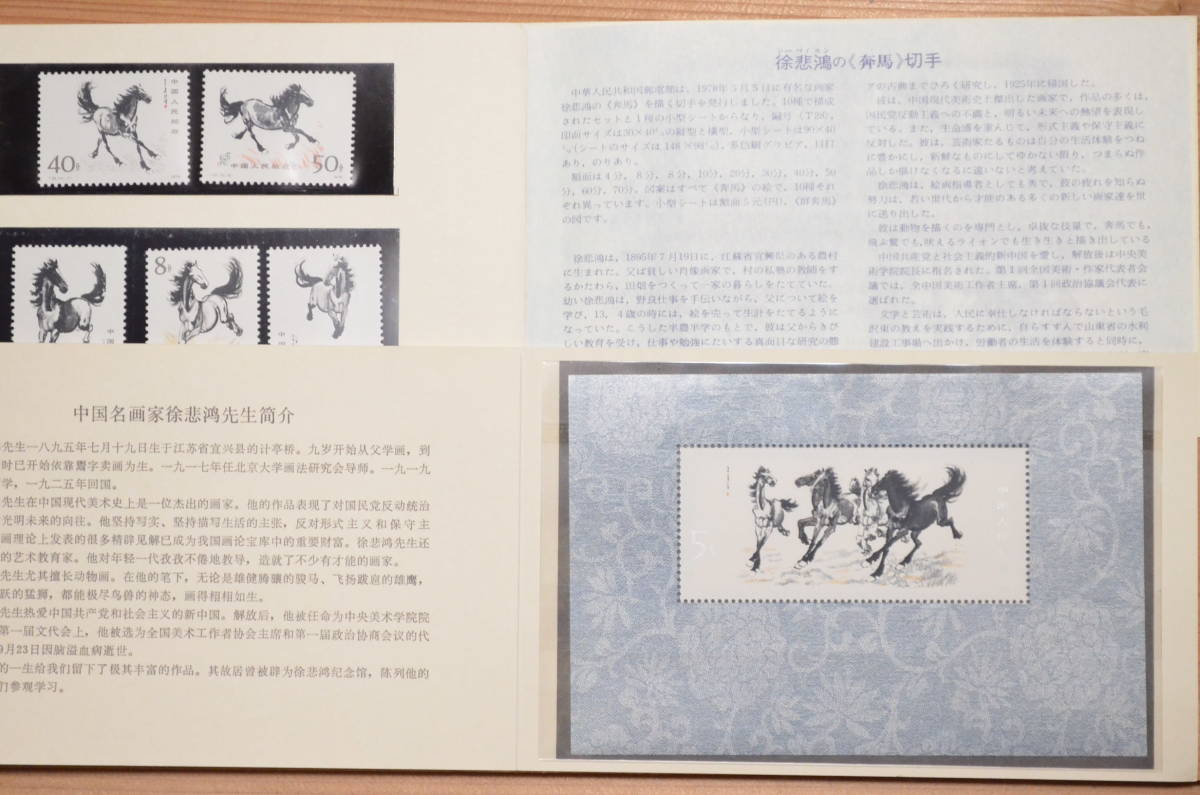 40分
中国人民邮政
50分
中国人民邮政
8分
徐悲鴻の《奔馬》切手
シーペイホン
中華人民共和国郵電部は、1978年5月5日に有名な画家
徐悲鴻の《奔馬》を描く切手を発行しました。10種で構成
されたセットと1種の小型シートからなり、編号《T28》、
印面サイズは30×40㎜の縦型と横型、小型シートは90×40
㎜(シートのサイズは148×98㎜)、多色刷グラビア、目打
あり、のりあり。
額面は4分、8分、8分、10分、20分、30分、40分、50
分、60分、70分。図案はすべて《奔馬》の絵で、10種それ
ぞれ異っています。小型シートは額面5元(円)、《群奔馬》
の図です。
徐悲鴻は、1895年7月19日に、江蘇省宜興県のある農村
に生まれた。父は貧しい肖像画家で、村の私塾の教師をす
るかたわら、田畑をつくって一家の暮らしをたてていた。
幼い徐悲鴻は、野良仕事を手伝いながら、父について絵を
学び、13、4歳の時には、絵を売って生計をたてるように
なっていた。こうした半農半学のもとで、彼は父からきび
しい教育を受け、仕事や勉強にたいする真面目な研究の態
アの古典までひろく研究し、1925年に帰国した。
彼は、中国現代美術史上傑出した画家で、作品の多くは、
国民党反動主義への不満と、明るい未来への熱望を表現し
ている。また、生命感を重んじて、形式主義や保守主義に
反対した。彼は、芸術家たるものは自分の生活体験をつね
に豊かにし、新鮮なものにしてゆかない限り、つまらぬ作
品しか描けなくなるに違いないと考えていた。
徐悲鴻は、絵画指導者としても秀で、彼の疲れを知らぬ
努力は、若い世代から才能のある多くの新しい画家達を世
に送り出した。
彼は動物を描くのを専門とし、卓抜な技量で、奔馬でも、
飛ぶ鷲でも、吠えるライオンでも生き生きと描き出している
中国共産党と社会主義的新中国を愛し、解放後は中央美
術学院院長に指名された。第1回全国美術・作家代表者会
議では、全中国美術工作者主席、第1回政治協議会代表に
選ばれた。
文学と芸術は、人民に奉仕しなければならないという毛
沢東の教えを実践するために、自らすす人で山東省の水利
建設工事場へ出かけ、労働者の生活を体験すると同時に、
中国名画家徐悲鸿先生简介
先生一八九五年七月十九日生于江苏省宜兴县的计亭桥。九岁开始从父学画，到
时已开始依靠鬻字卖画为生。一九一七年任北京大学画法研究会导师。一九一九
学，一九二五年回国。
先生在中国现代美术史上是一位杰出的画家。他的作品表现了对国民党反动统治
光明未来的向往。他坚持写实、坚持描写生活的主张，反对形式主义和保守主
画理论上发表的很多精辟见解已成为我国画论宝库中的重要财富。徐悲鸿先生还
的艺术教育家。他对年轻一代孜孜不倦地教导，造就了不少有才能的画家。
先生尤其擅长动物画。在他的笔下，无论是雄健腾骧的骏马、飞扬跋扈的雄鹰，
跃的猛狮，都能极尽鸟兽的神态，画得栩栩如生。
先生热爱中国共产党和社会主义的新中国。解放后，他被任命为中央美术学院院
第一届文代会上，他被选为全国美术工作者协会主席和第一届政治协商会议的代
9月23日因脑溢血病逝世。
的一生给我们留下了极其丰富的作品。其故居曾被辟为徐悲鸿纪念馆，陈列他的
们参观学习。